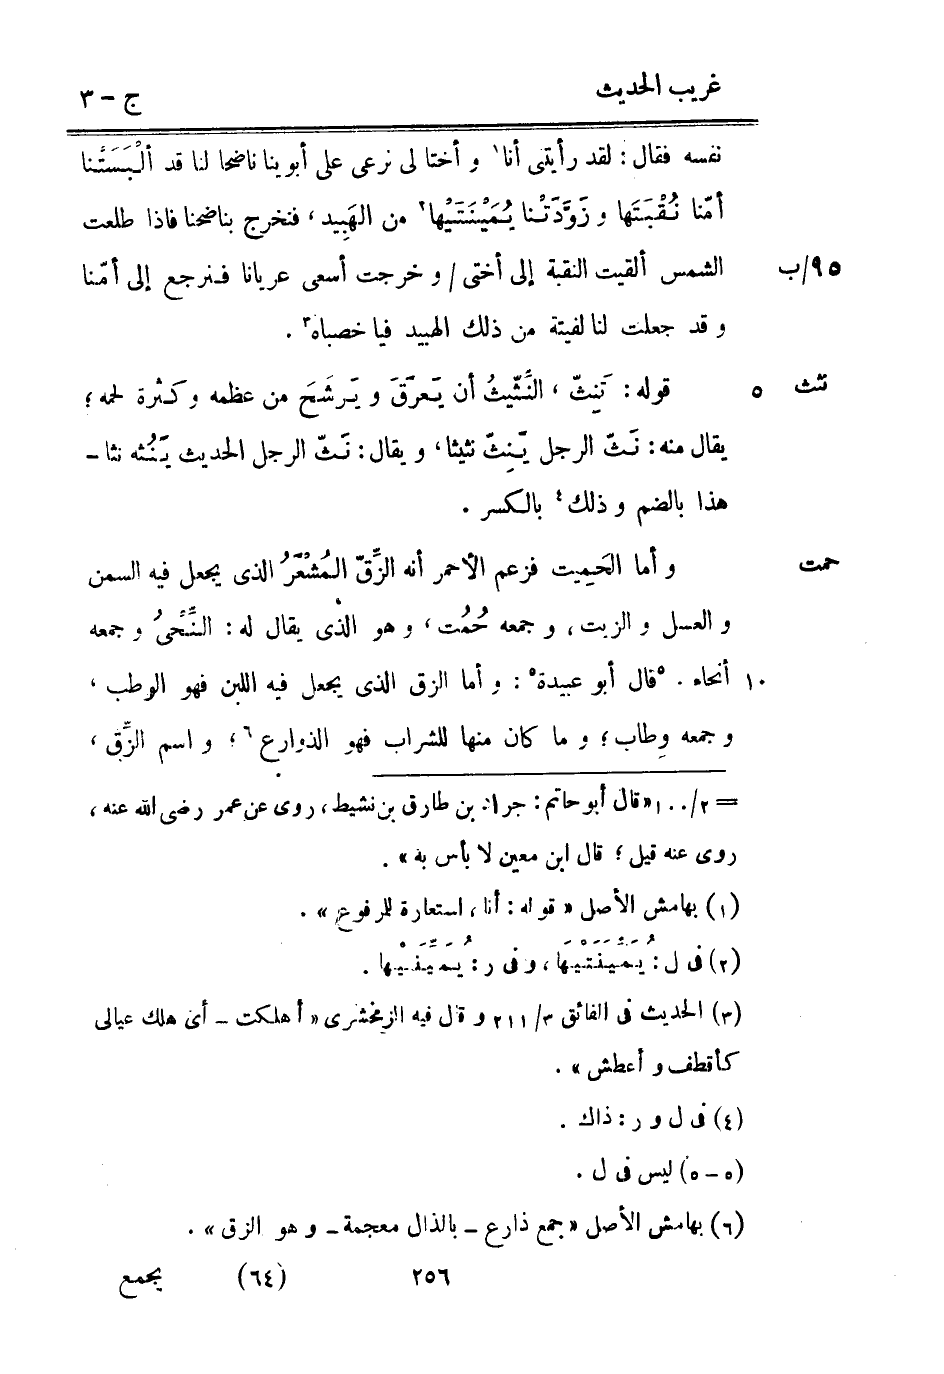 غريب الحديث ج - ٣
نفسه فقال: لقد رأيتنى أنا١ و أختا لى نرعى على أبوينا ناضحا لنا قد ألْبَسَتْنا
أمّنا نُقْبَتَها و زَوَّدَتْنا يُمَيْنَتَيْها٢ من الهَبِيد، فنخرج بناضحنا فاذا طلعت
الشمس ألقيت النقبة إلى أختى / و خرجت أسعى عريانا فنرجع إلى أمّنا ٩٥/ب
و قد جعلت لنا لفيتة من ذلك الهبيد فيا خصباه٣ .
قوله: تَنِثّ ، النَّثِيثُ أن يَعرَقَ و يَرشَحَ من عظمه وكثرة لحمه؛ ٥ نثث
يقال منه: نَثّ الرجل يَنِثّ نثيثا، و يقال: نَثّ الرجل الحديث يَنُثه نثا -
هذا بالضم و ذلك٤ بالكسر .
و أما الحَمِيت فزعم الأحمر أنه الزِّقّ المُشْعَرُ الذى يجعل فيه السمن حمت
و العسل و الزيت، و جمعه حُمُت، و هو الذى يقال له: النِّحْىُ و جمعه
أنحاء . ٥قال أبو عبيدة٥: و أما الزق الذى يجعل فيه اللبن فهو الوطب، ١٠
و جمعه وِطاب؛ و ما كان منها للشراب فهو الذوارع٦؛ و اسم الزِّق،
= ٢/١٠٠ «قال أبو حاتم: جراد بن طارق بن نشيط، روى عن عمر رضى الله عنه،
روى عنه قيل؛ قال ابن معين لا بأس به» .
(١) بهامش الأصل «قوله: أنا، استعارة للرفوع» .
(٢) فى ل: يُمَيْنَتَيْهَا، و فى ر: يُمَيِّنَيْها .
(٣) الحديث فى الفائق ٣/٢١١ و قال فيه الزمخشرى «أهلكت - أى هلك عيالى
كأقطف و أعطش» .
(٤) فى ل و ر: ذاك .
(٥ - ٥) ليس فى ل .
(٦) بهامش الأصل «جمع ذارع - بالذال معجمة - و هو الزق» .
٢٥٦ (٦٤) يجمع